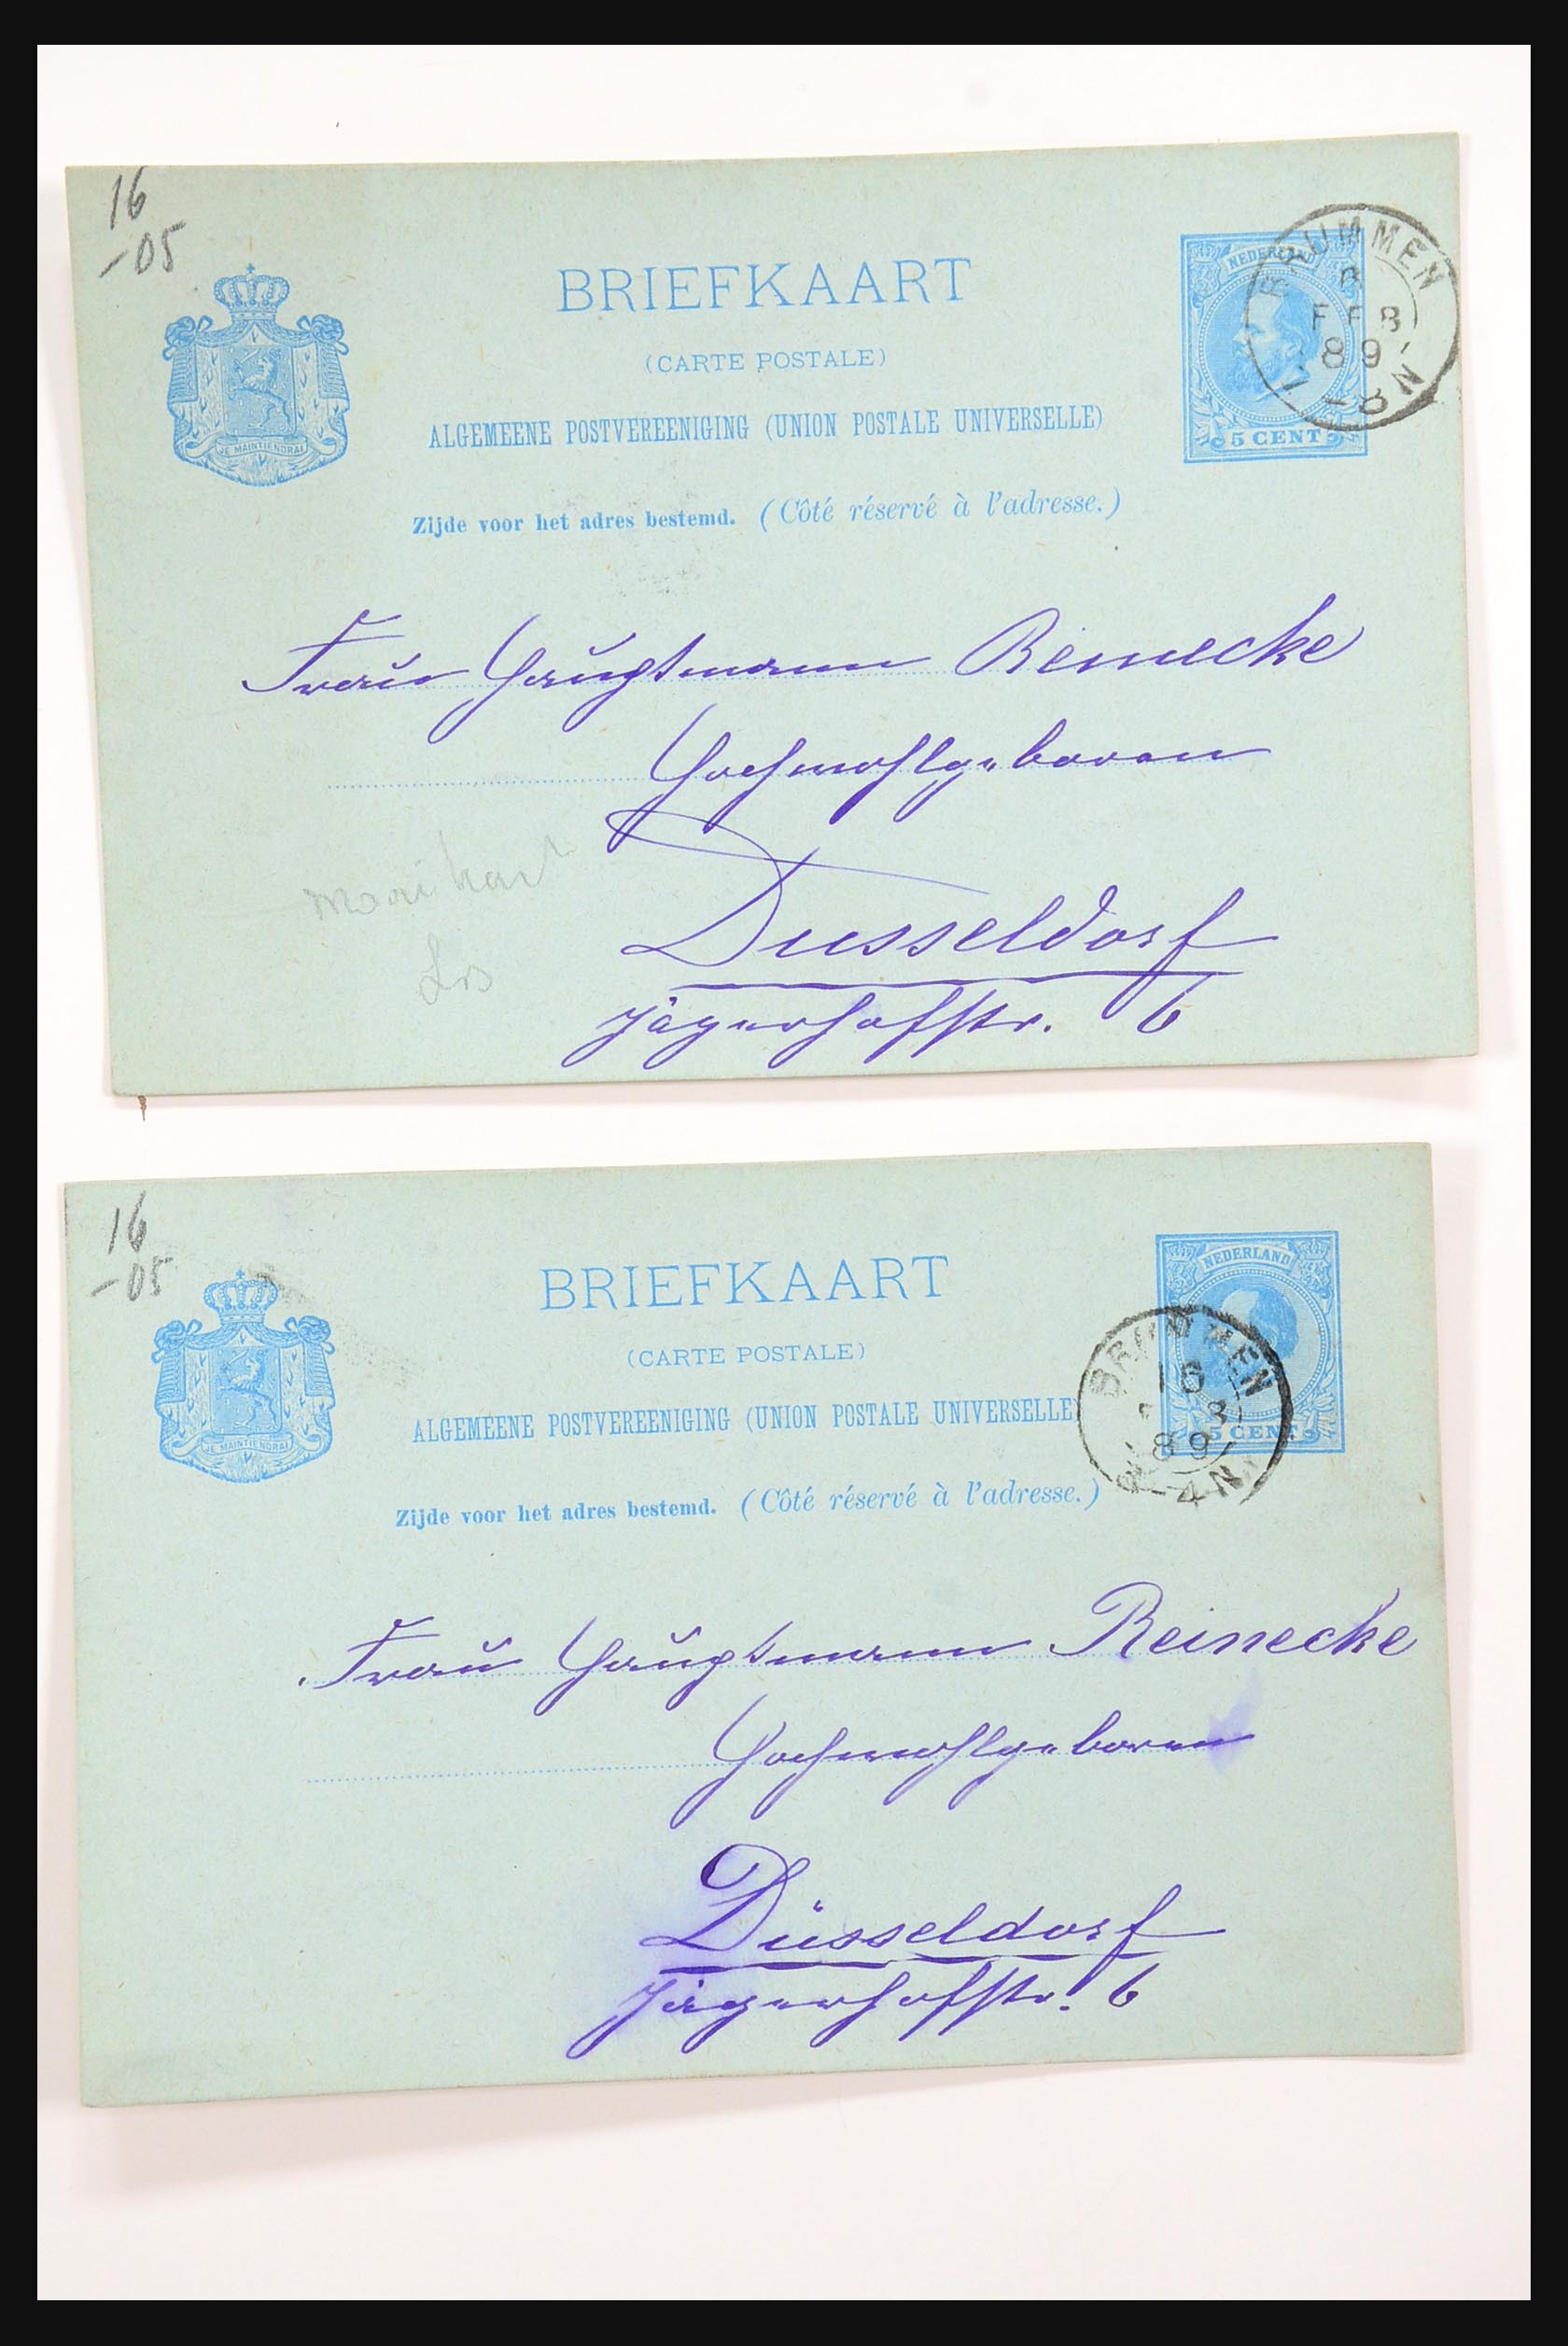 16
-05
BRIEFKAART
(CARTE POSTALE)
ALGEMEENE POSTVEREENIGING (UNION POSTALE UNIVERSELLE)
Zijde voor het adres bestemd. (Côté réservé à l'adresse.)
JE MAINTIENDRAI
NEDERLAND
5 CENT
BRUMMEN
8
FEB
89
7-8N
Frau Hauptmann Reinecke
Hochwohlgeboren
Dusseldorf
Jägerhofstr. 6
16
-05
BRIEFKAART
(CARTE POSTALE)
ALGEMEENE POSTVEREENIGING (UNION POSTALE UNIVERSELLE)
Zijde voor het adres bestemd. (Côté réservé à l'adresse.)
JE MAINTIENDRAI
NEDERLAND
5 CENT
BRUMMEN
16
89
-4N
Frau Hauptmann Reinecke
Hochwohlgeboren
Düsseldorf
Jägerhofstr. 6